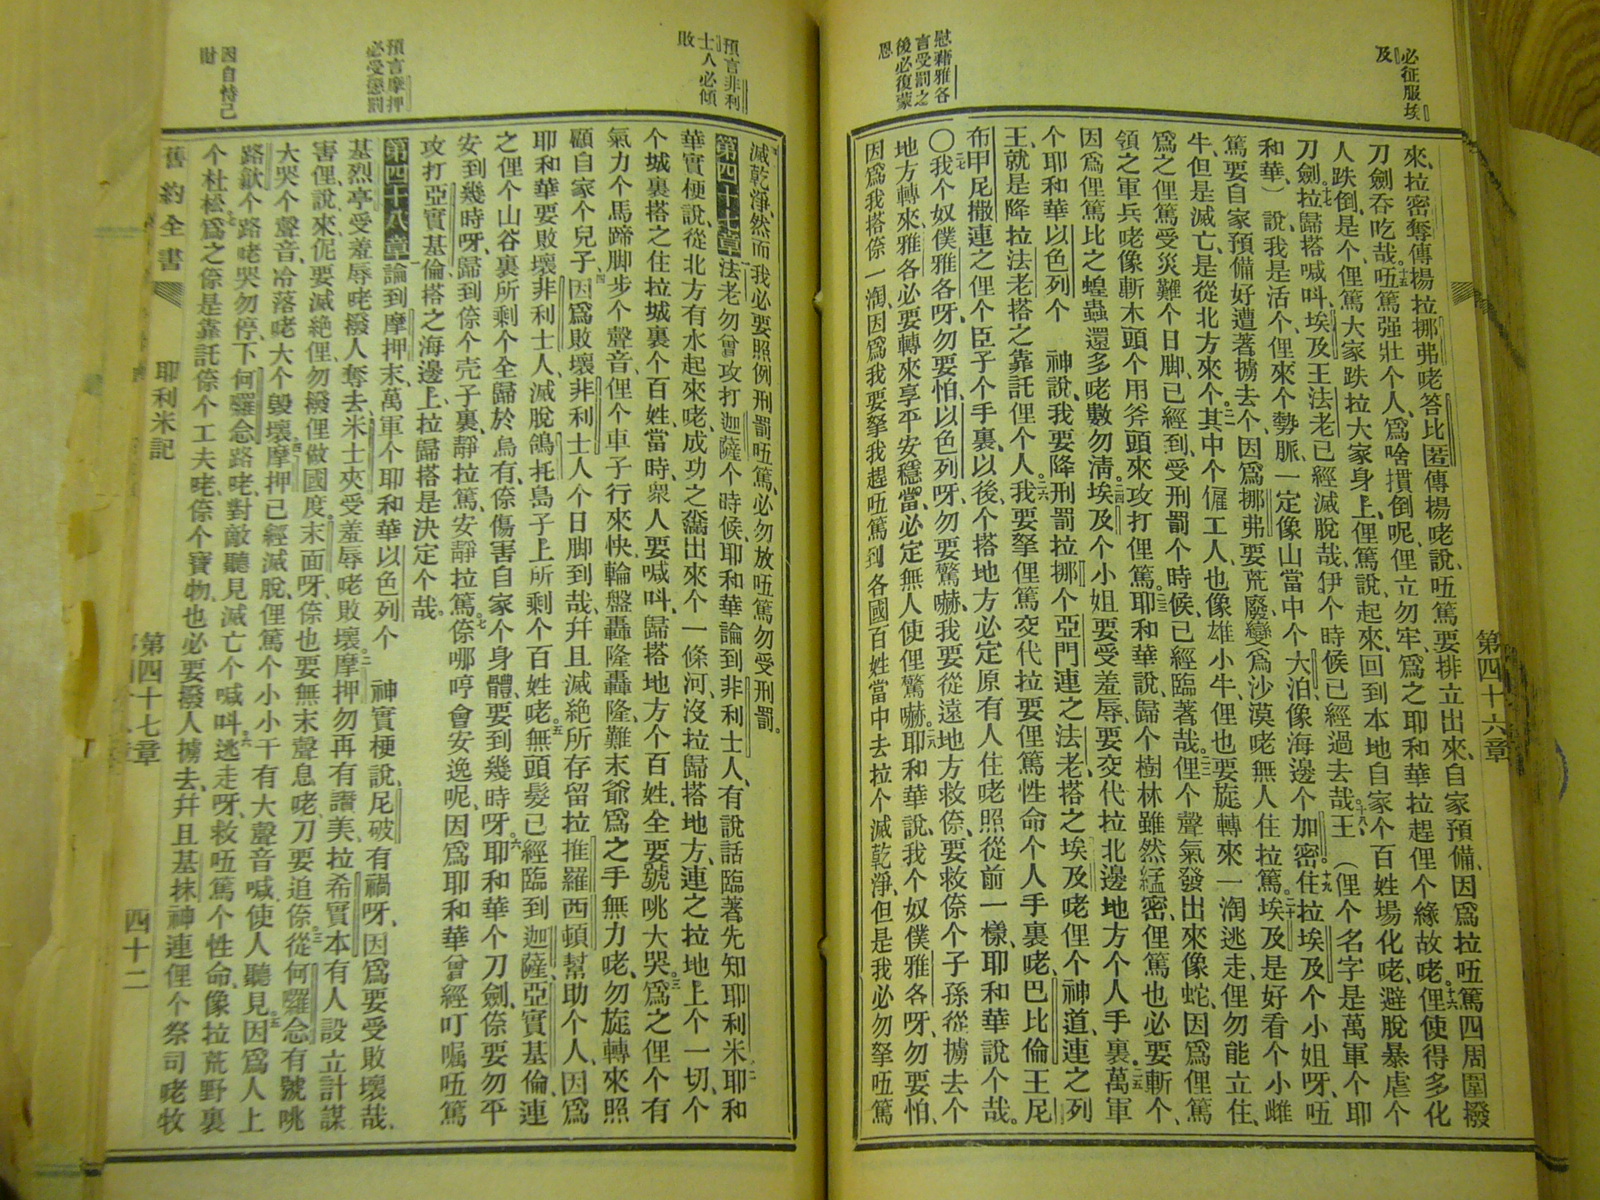 必征服埃
及
慰藉雅各
言受罰之
後必復蒙
恩
第四十六章
來、拉密奪傳揚拉挪弗咾答比匿傳揚咾說、吾篤要排立出來、自家預備、因爲拉吾篤四周圍撥
刀劍吞吃哉。十五吾篤强壯个人、爲啥摜倒呢、俚立勿牢、爲之耶和華拉趕俚个緣故咾。十六俚使得多化
人跌倒、是个、俚篤大家跌拉大家身上、俚篤說、起來、回到本地自家个百姓塲化咾、避脫暴虐个
刀劍。十七拉歸搭喊呌、埃及王法老已經滅脫哉、伊个時候已經過去哉。十八王（俚个名字是萬軍个耶
和華）說、我是活个、俚來个勢脈、一定像山當中个大泊、像海邊个加密。十九住拉埃及个小姐呀、吾
篤要自家預備好遭著擄去个、因爲挪弗要荒廢、變爲沙漠咾無人住拉篤。二十埃及是好看个小雌
牛、但是滅亡、是從北方來个。二一其中个僱工人、也像雄小牛、俚也要旋轉來一淘逃走、俚勿能立住、
爲之俚篤受災難个日脚、已經到、受刑罰个時候、已經臨著哉。二二俚个聲氣發出來像蛇、因爲俚篤
領之軍兵咾像斬木頭个用斧頭來攻打俚篤。二三耶和華說、歸个樹林雖然綿密、俚篤也必要斬个、
因爲俚篤比之蝗蟲還多咾數勿淸。二四埃及个小姐要受羞辱、要交代拉北邊地方个人手裏。二五萬軍
个耶和華以色列个 神說、我要降刑罰拉挪个亞門、連之法老、搭之埃及、咾俚个神道、連之列
王、就是降拉法老搭之靠託俚个人。二六我要拏俚篤交代拉要俚篤性命个人手裏咾、巴比倫王尼
布甲尼撒連之俚个臣子个手裏、以後、个搭地方必定原有人住咾照從前一樣、耶和華說个哉。
〇二七我个奴僕雅各呀、勿要怕、以色列呀、勿要驚嚇、我要從遠地方救倷、要救倷个子孫從擄去个
地方轉來、雅各必要轉來享平安穩當、必定無人使俚驚嚇。二八耶和華說、我个奴僕雅各呀、勿要怕、
因爲我搭倷一淘、因爲我要拏我趕吾篤到各國百姓當中去拉个滅乾淨、但是我必勿拏吾篤
預言非利
士人必傾
敗
預言摩押
必受懲罰
因自恃己
財
滅乾淨、然而我必要照例刑罰吾篤、必勿放吾篤勿受刑罰。
第四十七章 法老勿曾攻打迦薩个時候、耶和華論到非利士人、有說話臨著先知耶利米、二耶和
華實梗說、從北方有水起來咾、成功之潏出來个一條河、沒拉歸搭地方、連之拉地上个一切、个
个城裏搭之住拉城裏个百姓、當時、衆人要喊呌、歸搭地方个百姓、全要號咷大哭。三爲之俚个有
氣力个馬蹄脚步个聲音、俚个車子行來快、輪盤轟隆轟隆、難末爺爲之手無力咾、勿旋轉來照
顧自家个兒子、四因爲敗壞非利士人个日脚到哉、幷且滅絕所存留拉推羅西頓幫助个人、因爲
耶和華要敗壞非利士人、滅脫鴿托島子上所剩个百姓咾。五無頭髮已經臨到迦薩、亞實基倫、連
之俚个山谷裏所剩个全歸於烏有、倷傷害自家个身體要到幾時呀。六耶和華个刀劍、倷要勿平
安到幾時呀、歸到倷个壳子裏、靜拉篤、安靜拉篤。七倷哪哼會安逸呢、因爲耶和華曾經叮囑吾篤
攻打亞實基倫搭之海邊上、拉歸搭是決定个哉。
第四十八章 論到摩押末、萬軍个耶和華以色列个 神實梗說、尼破有禍呀、因爲要受敗壞哉、
基烈亭受羞辱咾撥人奪去、米士夾受羞辱咾敗壞。二摩押勿再有讚美、拉希實本有人設立計謀
害俚、說、來、伲要滅絕俚、勿撥俚做國度。末面呀、倷也要無末聲息咾、刀要追倷。三從何羅念有號咷
大哭个聲音、冷落咾大个毀壞。四摩押已經滅脫、俚篤个小小干有大聲音喊、使人聽見。五因爲人上
路歆个路咾哭勿停、下何羅念路咾、對敵聽見滅亡个喊呌。六逃走呀、救吾篤个性命、像拉荒野裏
个杜松。七爲之倷是靠託倷个工夫咾、倷个寶物、也必要撥人擄去、幷且基抹神連俚个祭司咾牧
舊約全書 耶利米記 第四十七章 四十二